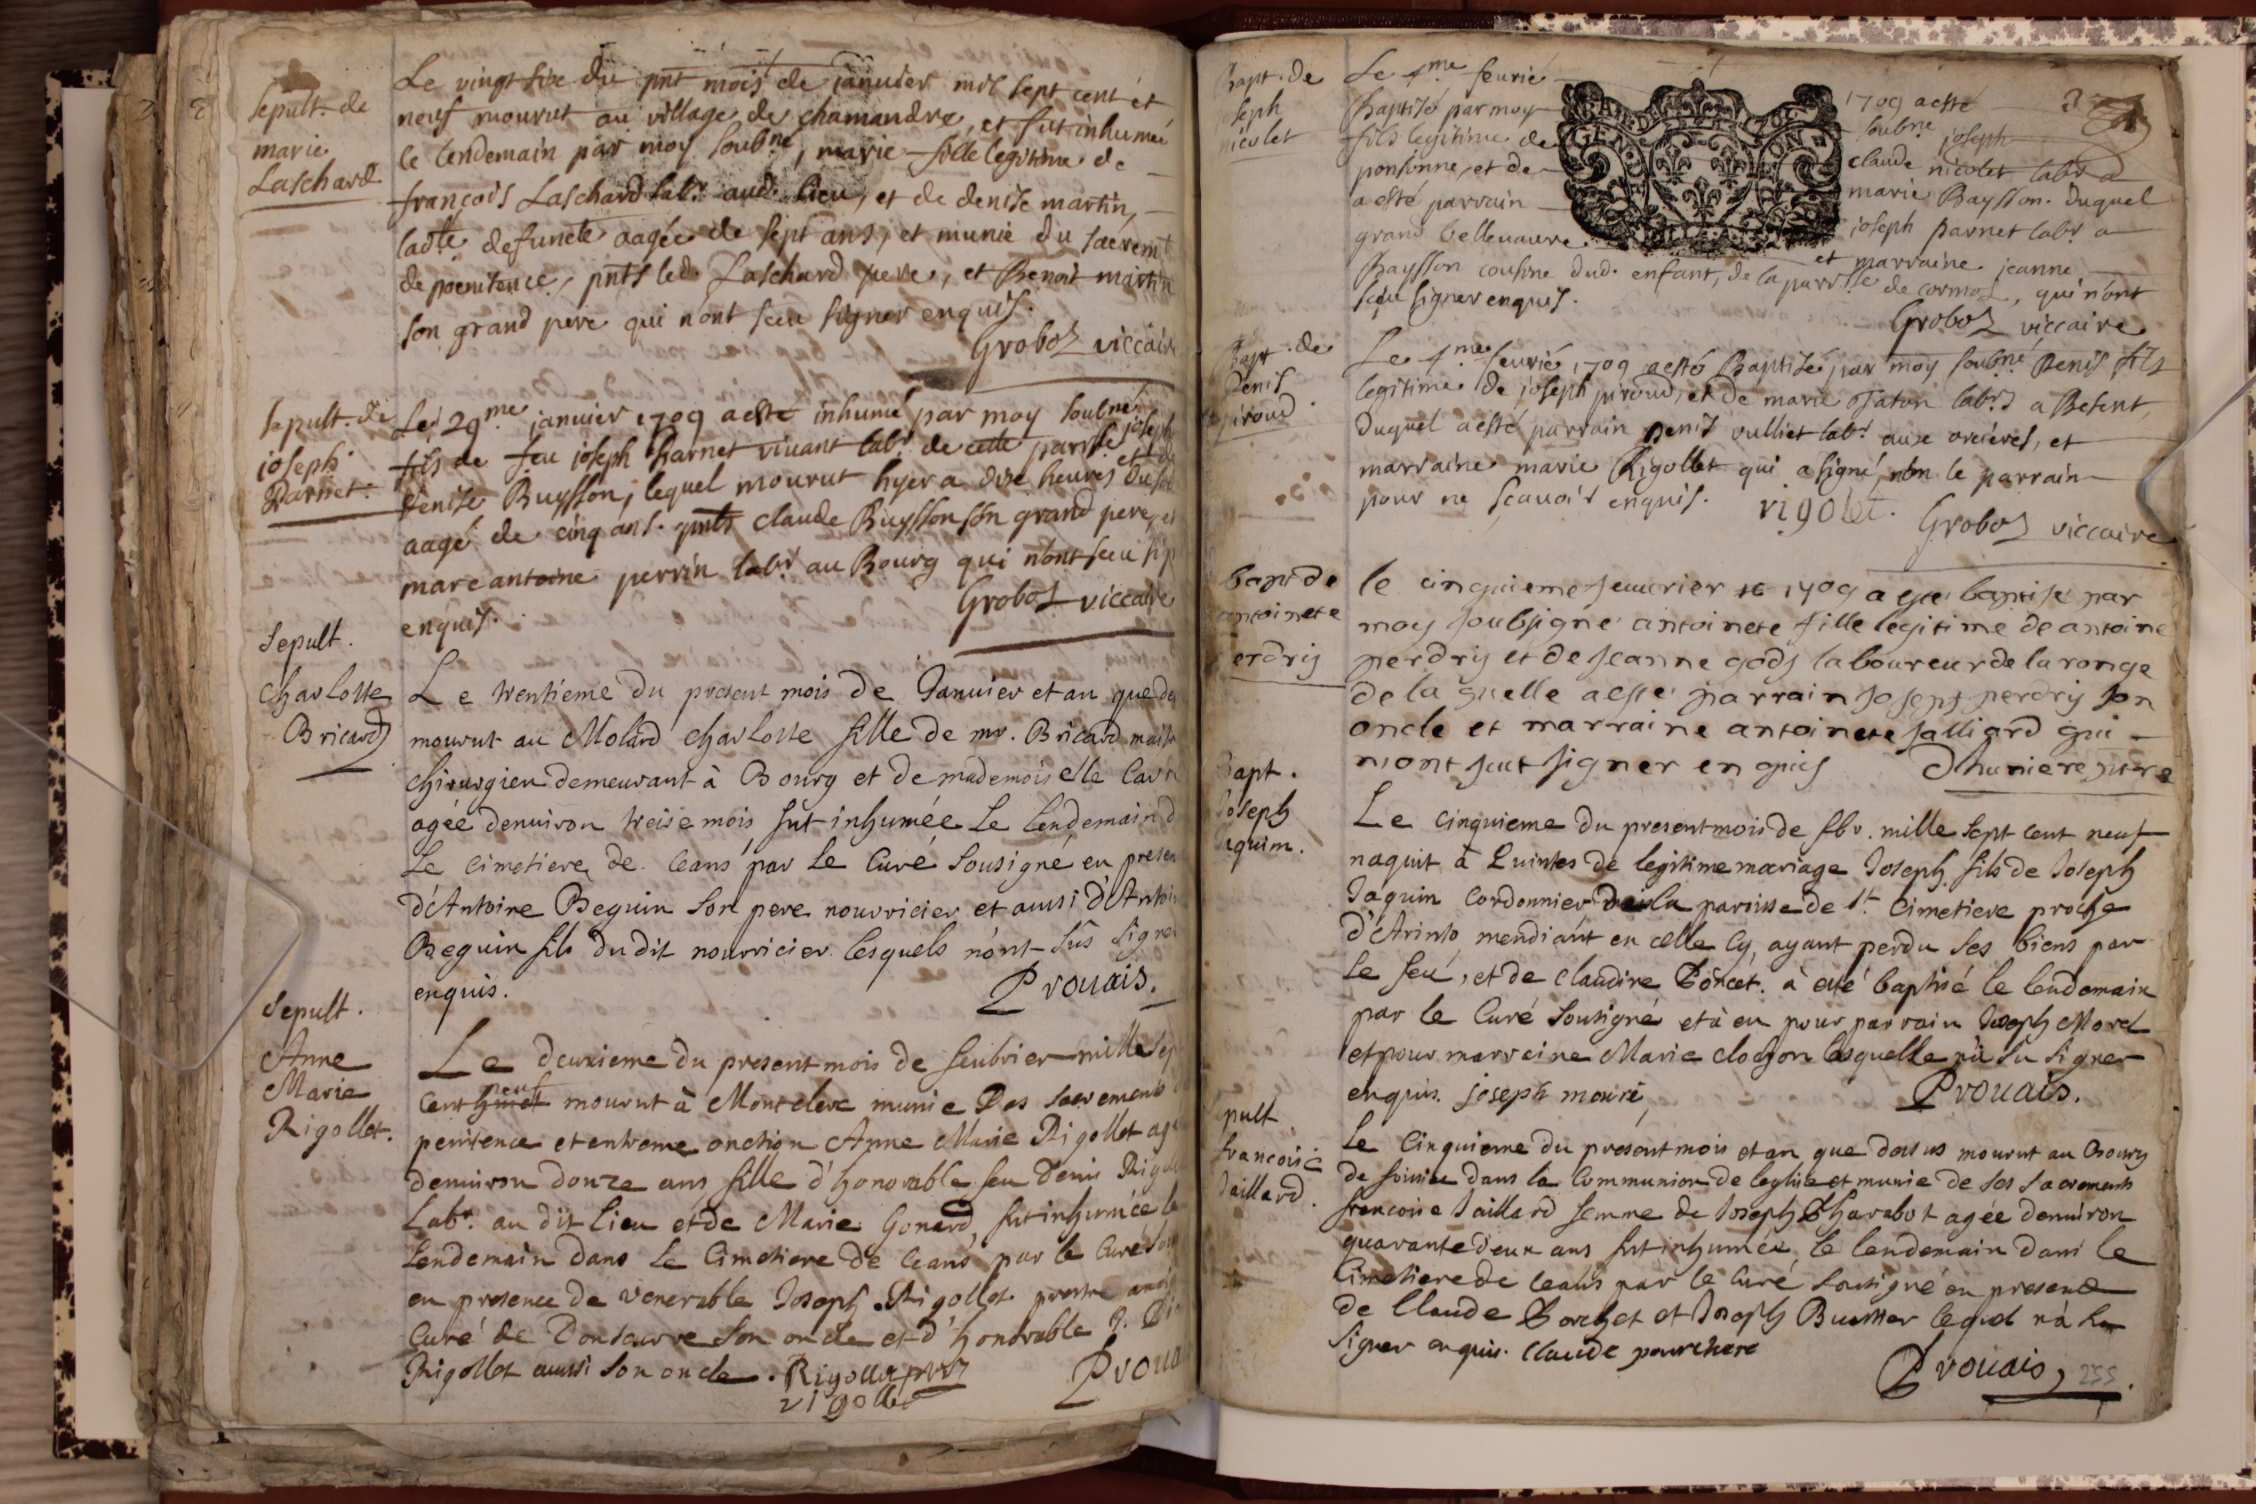 Sepult. de
marie
Laschard
Le vingt six du pnt mois de janvier mil sept cent et
neuf mourut au village de chamandre, et fut inhumée
le lendemain par moy soubné, marie fille legitime de
françois Laschard labr. aud. lieu, et de denise martin,
ladte defuncte aagée de sept ans, et munie du sacremt
de poenitence, pnts led. Laschard pere, et Benoit martin
son grand pere qui n'ont sceu signer enquis.
Groboz viccaire
Sepult. de
joseph
Parnet.
Le 29me janvier 1709 a esté inhumé par moy soubné joseph
fils de feu joseph Parnet vivant labr de cette parsse et de
denise Buysson, lequel mourut hyer a dix heures du
aagé de cinq ans. pnts claude Buysson son grand pere, et
marc antoine perrin labr au Bourg qui n'ont sceu
enquis.
Groboz viccaire
Sepult.
Charlotte
Bricard
Le trentieme du present mois de Janvier et an que
mourut au Molard charlotte fille de mr. Bricard
chirurgien demeurant à Bourg et de mademoiselle
agée denviron treise mois fut inhumée Le lendemain
Le cimetiere de ceans par le Curé sousigné en
d'Antoine Beguin son pere nourricier et aussi d'
Beguin fils du dit nourricier lesquels n'ont sûs
enquis.
Prouais.
Sepult.
Anne
Marie
Rigollet.
Le deuxieme du present mois de feubrier mille
cent neuf mourut à Montclerc munie Des sacrements
penitence et extreme onction Anne Marie Rigollet
denviron douze ans fille d'honorable feu Denis
Labr. au dit lieu et de Marie Gonard, fut inhumée le
lendemain dans Le Cimetiere de ceans par le Curé
en presence de venerable Joseph Rigollet prestre
Curé de Domsurre son oncle et d'honorable J.
Rigollet aussi son oncle. Rigollet
rigollet
Bapt. de
joseph
nicolet
Le 4me feurié 1709 a esté
Baptisé par moy soubné joseph
fils legitime de claude nicolet labr a
ponsonne, et de marie Baysson. Duquel
a esté parrain joseph parnet labr a
grand bellevavre et marraine jeanne
Baysson cousine dud. enfant, de la parsse de cormoz, qui n'ont
sceu signer enquis.
Groboz viccaire
Bapt. de
Denis
piroud
Le 4me feurié 1709 a esté Baptisé par moy soubné Denis fils
legitime de joseph piroud, et de marie labrs a Besent,
Duquel a esté parrain Denis vulliet labr aux orcieres, et
marraine marie Rigollet qui a signé, non le parrain
pour ne sçauoir enquis.
rigolet.
Groboz viccaire
bapt de
antoinete
erdrij
le cinquieme feuurier 1709 a este baptisé par
moy soubsigne antoinete fille legitime de antoine
perdrij et de jeanne gody laboureur de la ronge
de la quelle a este parrain joseph perdrij son
oncle et marraine antoinete jalliard qui
n'ont sceut signer enquis
Bapt.
Joseph
Jaquim.
Le cinquieme du present mois de fbr. mille sept cent neuf
naquit à Luintes de legitime mariage Joseph fils de Joseph
Jaquin Cordonnier de la paroisse de St. Cimetiere proche
d'Arinto mendiant en celle cy, ayant perdu ses biens par
Le feu, et de claudine Poncet. à eté baptisé le lendemain
par le Curé sousigné et à eu pour parrain Joseph Morel
et pour marraine Marie lasquelle n'à su signer
enquis. joseph
Prouais.
françoise
Jaillard.
Le Cinquieme du present mois et an que dessus mourut au Bourg
de foissia dans la Communion de leglise et munie de ses sacrements
françoise Jaillard femme de Joseph Charabot agée denviron
quarante deux ans fut inhumée le lendemain dans le
Cimetiere de ceans par le Curé sousigné en presence
de Claude et Joseph lequel n'à su
signer enquis. Claude
Prouais,
255